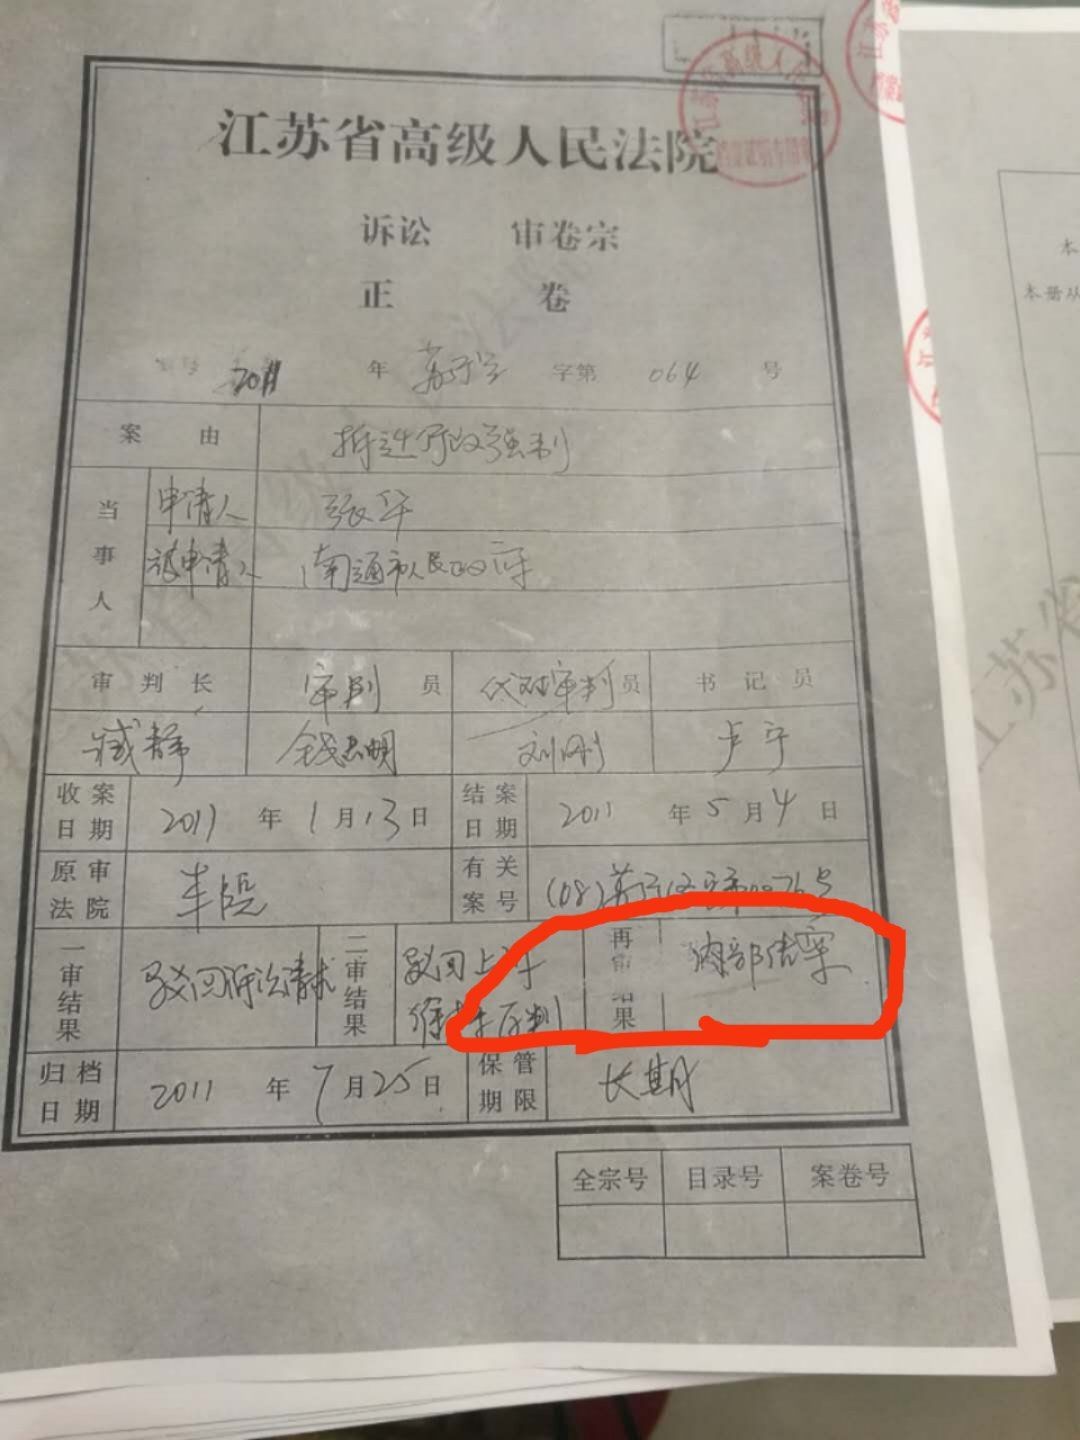 江苏省高级人民法院
诉讼 审卷宗
正 卷
2011 年 字第 064 号
案由 拆迁行政强制
当事人
申请人 张华
被申请人 南通市人民政府
审判长 审判员 代理审判员 书记员
臧静 钱志明 刘刚 卢宁
收案日期 2011年1月13日 结案日期 2011年5月4日
原审法院 本院 有关案号
一审结果 驳回诉讼请求 二审结果 驳回上诉 维持原判 再审结果 内部结案
归档日期 2011年7月25日 保管期限 长期
全宗号 目录号 案卷号
本
本册从